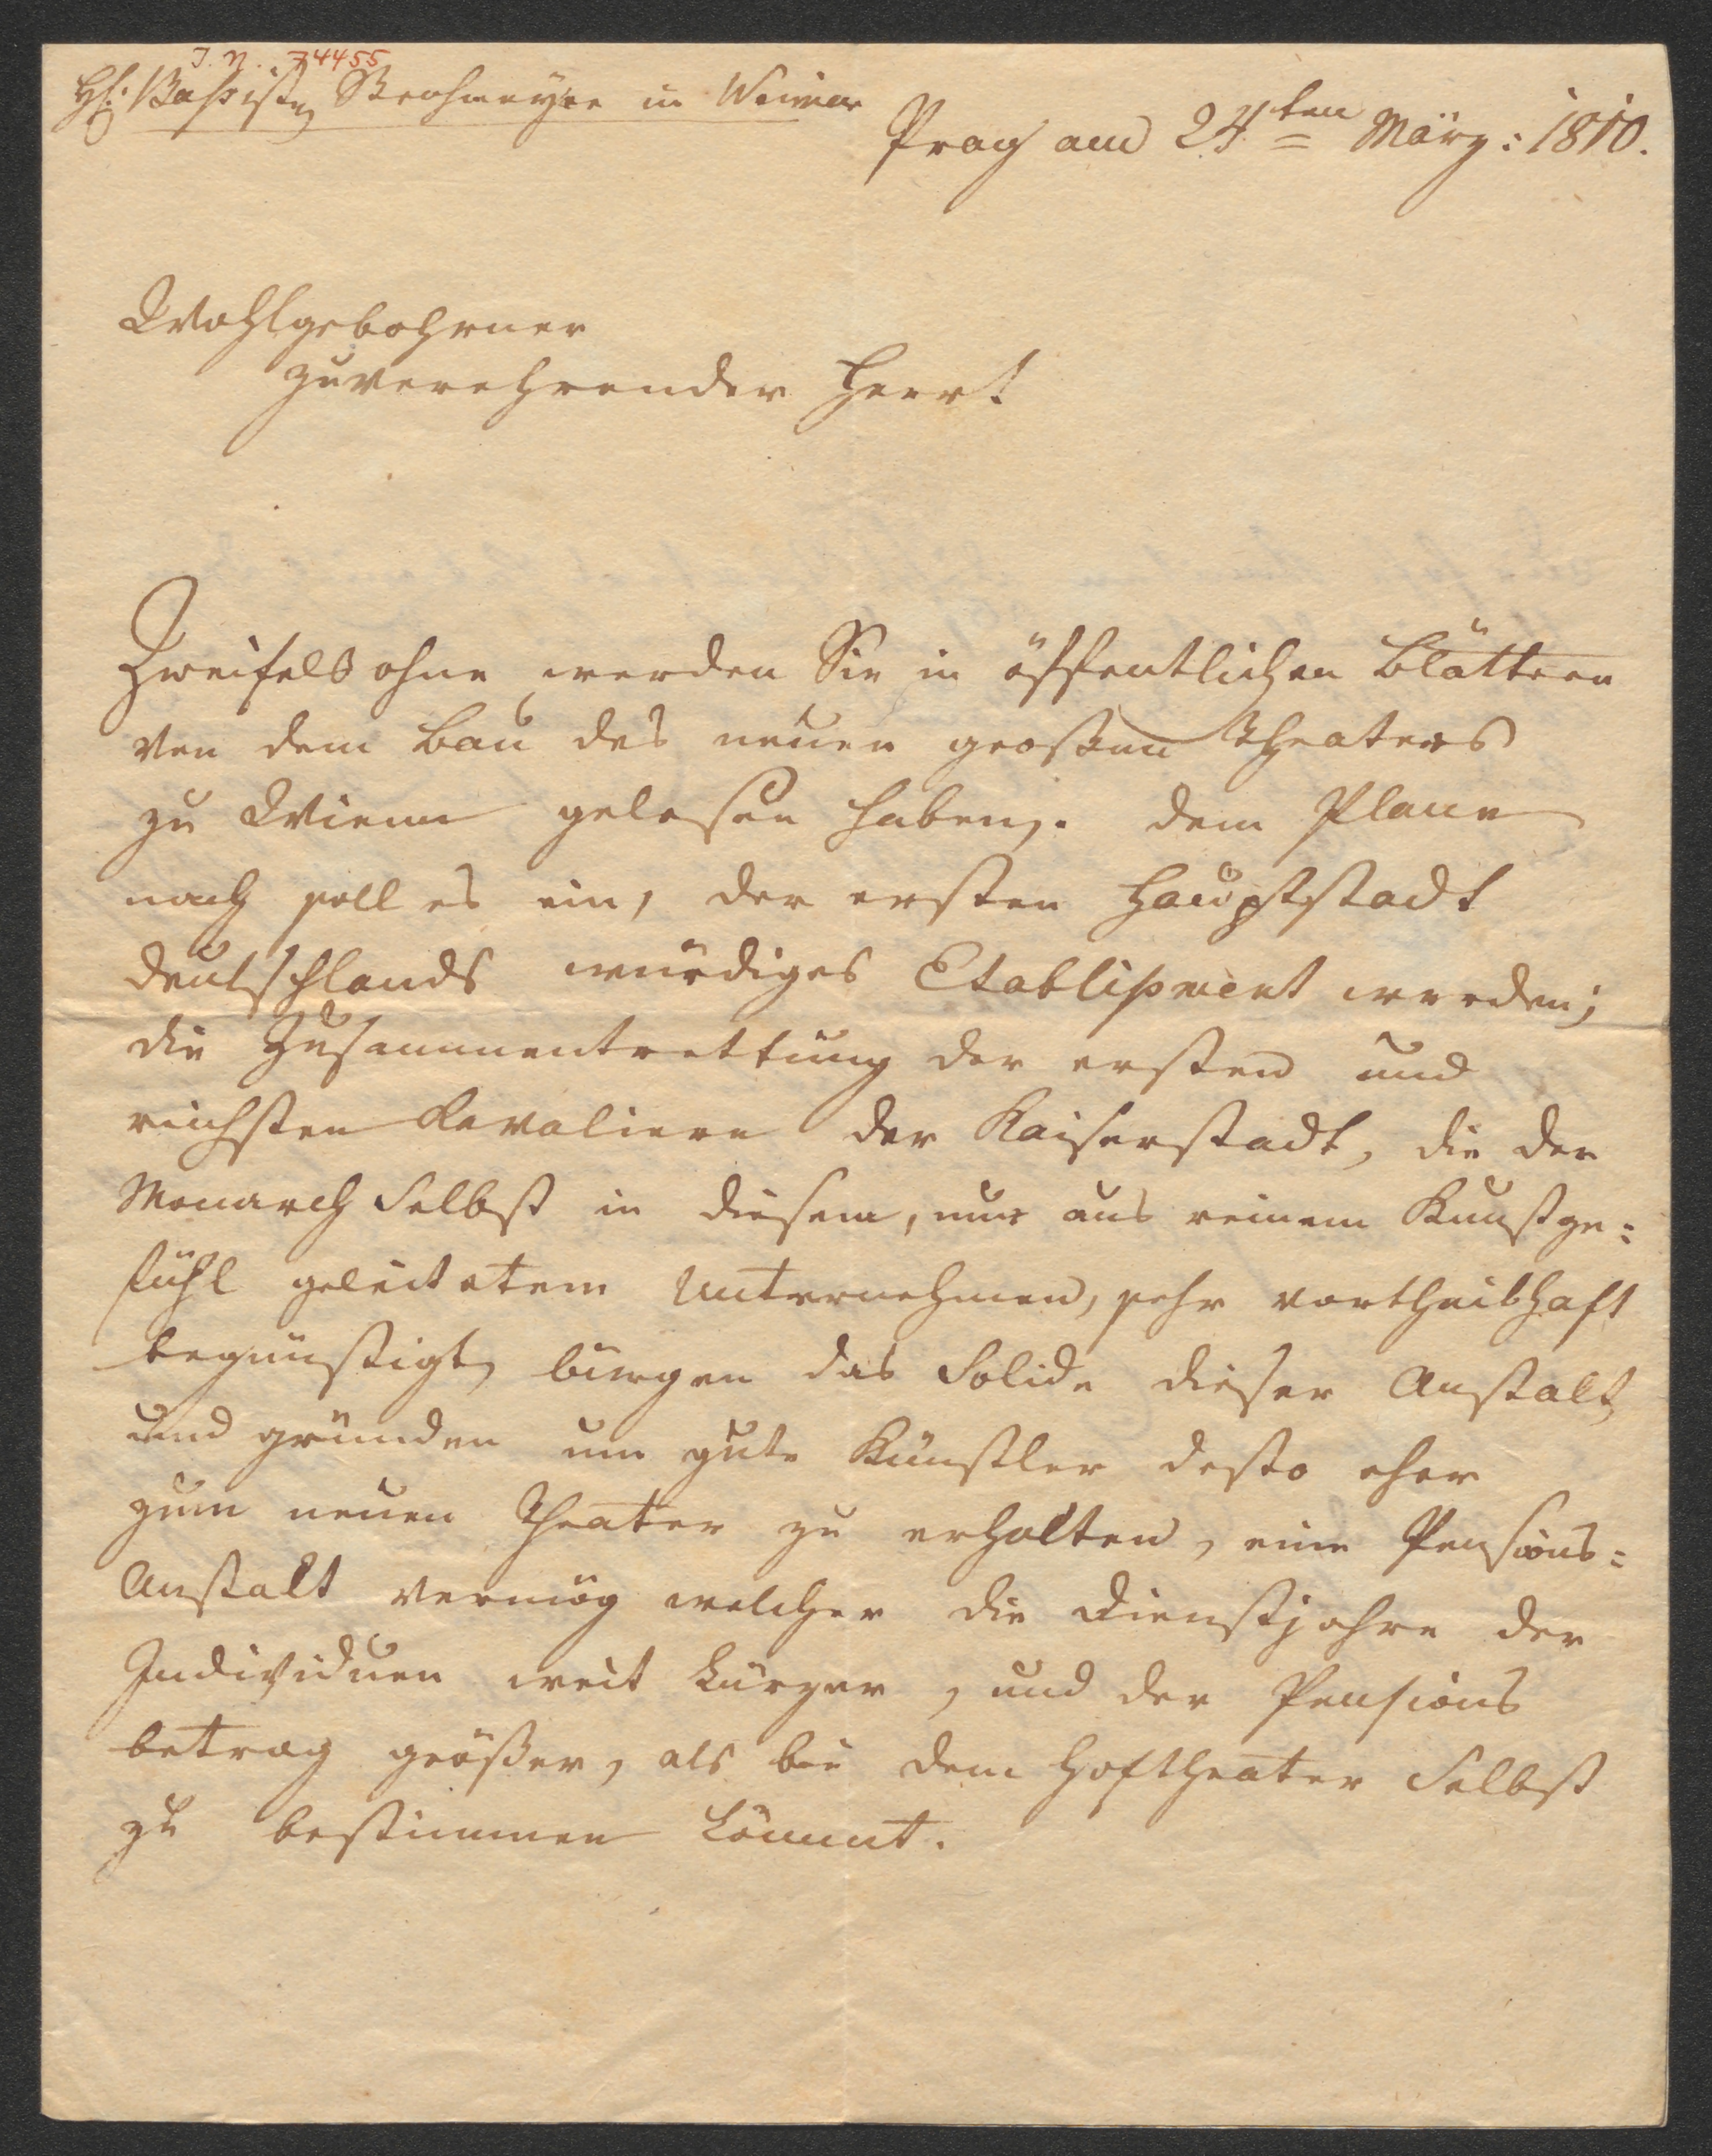 J. N. 74455
H: Bassisten Strohmeyer in Weimar
Prag am 24ten März: 1810.
Wohlgebohrner
zuverehrender Herr!
Zweifelsohne werden Sie in öffentlichen Blättern
von dem Bau des neuen großen Theaters
zu Wienn gelesen haben,. dem Plane
nach soll es ein, der ersten Hauptstadt
Deutschlands würdiges Etablißment werden;
die Zusammentrettung der ersten und
reichsten Kavaliere der Kaiserstadt, die der
Monarch selbst in diesem, nur aus reinem Kunstge:
fühl geleitetem Unternehmen, sehr vortheilhaft
begünstigt, bürgen das Solide dieser Anstalt,
und gründen um gute Künstler desto eher
zum neuen Theater zu erhalten, eine Pensions:
Anstalt vermög welcher die Dienstjahre der
Individuen weit kürzer, und der Pensions
betrag größer, als bei dem Hoftheater selbst
zu bestimmen kömmt.